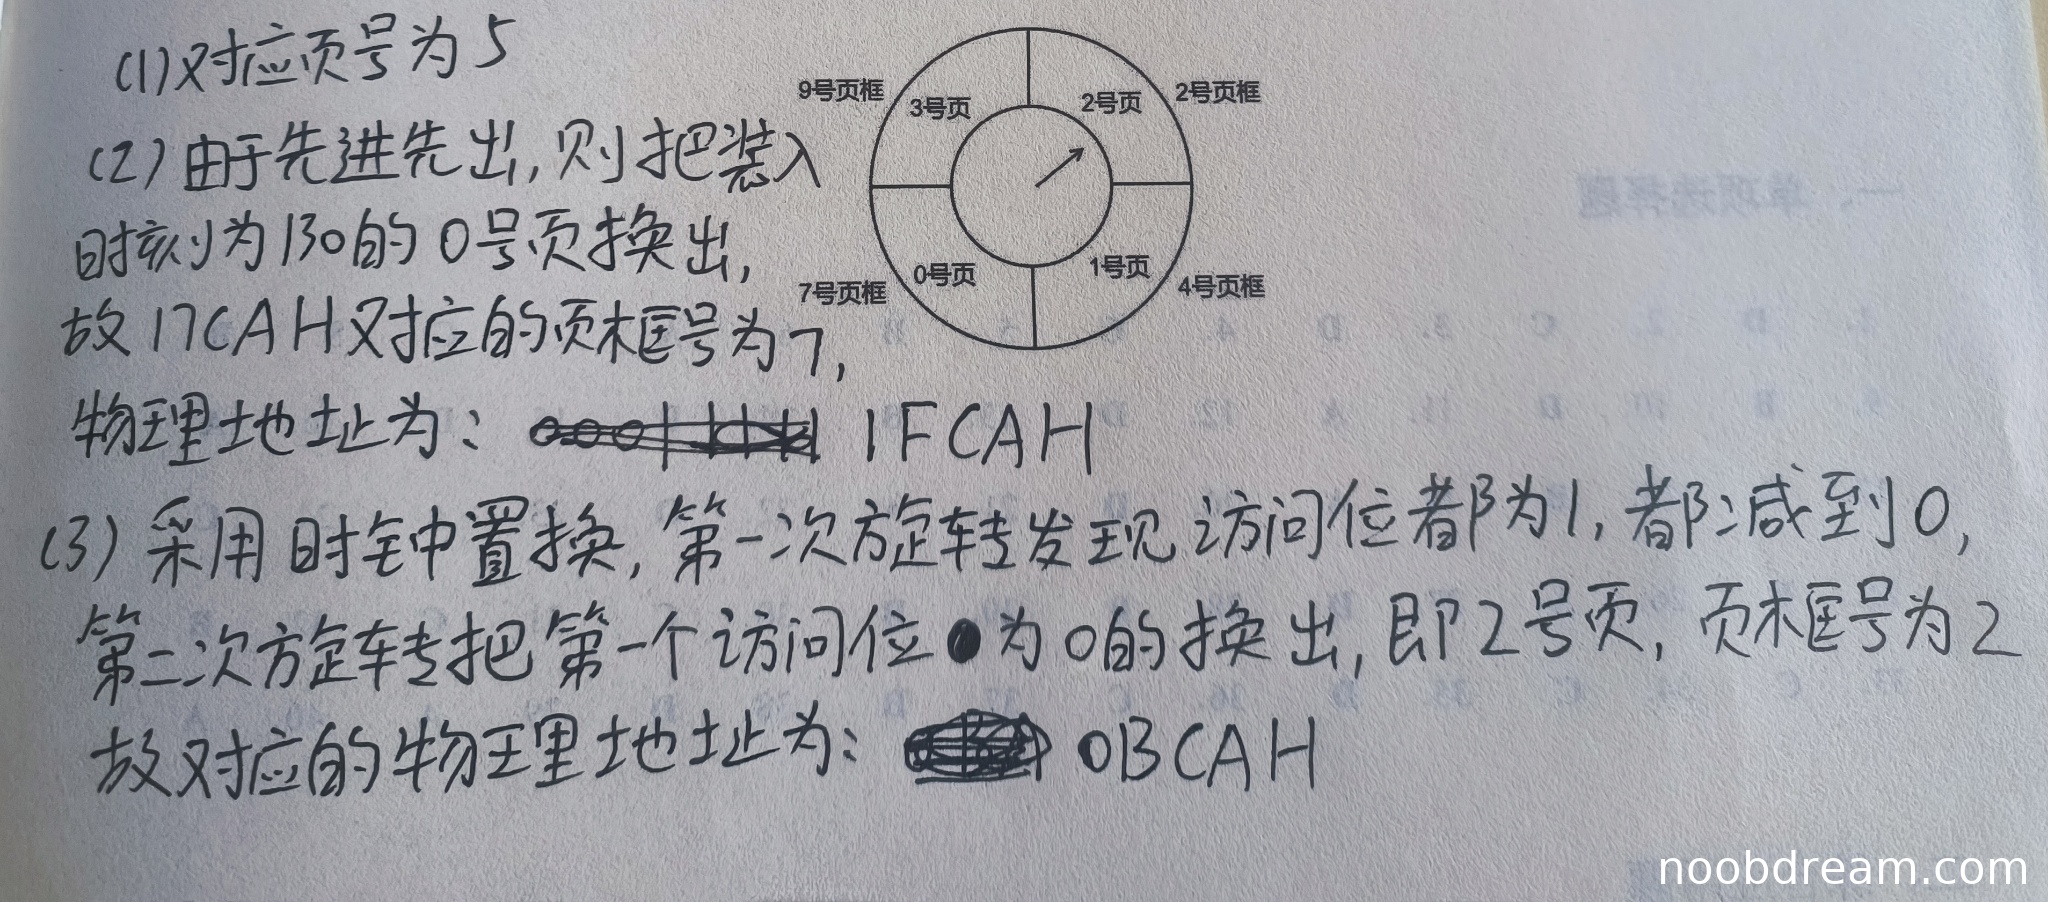 (1)对应页号为5
(2)由于先进先出,则把装入
时刻为130的0号页换出,
故17CAH对应的页框号为7,
物理地址为: 1FCAH
9号页框
3号页
2号页
2号页框
7号页框
0号页
1号页
4号页框
(3)采用时钟中置换,第一次旋转发现访问位都为1,都减到0,
第二次旋转把第一个访问位为0的换出,即2号页,页框号为2
故对应的物理地址为: 0BCAH
一、单项选择题
noobdream.com